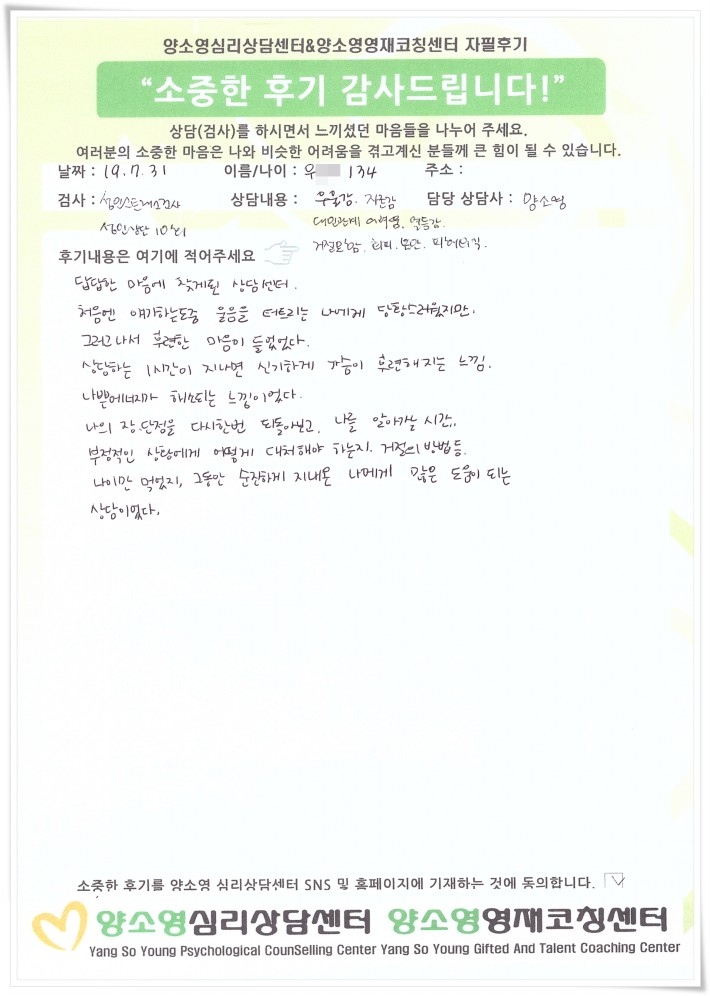 양소영심리상담센터&양소영영재코칭센터 자필후기
“소중한 후기 감사드립니다!”
상담(검사)를 하시면서 느끼셨던 마음들을 나누어 주세요.
여러분의 소중한 마음은 나와 비슷한 어려움을 겪고계신 분들께 큰 힘이 될 수 있습니다.
날짜 : 19.7.31 이름/나이 : 우 134 주소 :
검사 : 성인스트레스검사 상담내용 : 우울감. 자존감 담당 상담사 : 양소영
성인상담 10회 대인관계 어려움, 열등감
거절못함, 회피, 불안,
후기내용은 여기에 적어주세요
답답한 마음에 찾게된 상담센터.
처음엔 얘기하는도중 울음을 터트리는 나에게 당황스러웠지만.
그러고나서 후련한 마음이 들었었다.
상담하는 1시간이 지나면 신기하게 가슴이 후련해지는 느낌.
나쁜에너지가 해소되는 느낌이었다.
나의 장.단점을 다시한번 되돌아보고, 나를 알아가는 시간.
부정적인 상황에게 어떻게 대처해야 하는지. 거절의 방법등.
나이만 먹었지, 그동안 순진하게 지내온 나에게 많은 도움이 되는
상담이었다.
소중한 후기를 양소영 심리상담센터 SNS 및 홈페이지에 기재하는 것에 동의합니다.
양소영심리상담센터 양소영영재코칭센터
Yang So Young Psychological CounSelling Center Yang So Young Gifted And Talent Coaching Center